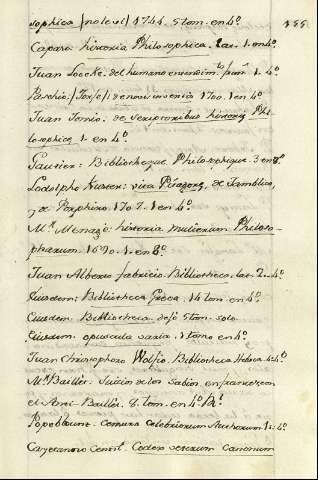 sophica (nolevi) 1744. 5 tom. en 4º
155.
Caparo: historia Philosophica. Lat. 1. en 4º
Juan Locke. del humano entendim.to 1. 4º
Paschio: / Jorje / de novis inventis 1700. 1 en 4º
Juan Jonsio: de scriptoribus historiæ Phi
losophicæ 1. en 4º
Gautier: Bibliotheque Philosophique. 3 en 8º
Lodolpho Kuster: vita Pitagoræ, de Jamblico,
y de Porphirio 1707. 1 en 4º
Mr. Menage: historia mulierum Philoso-
pharum. 1690. 1. en 8º
Juan Alberto fabricio. Bibliotheca. lat. 2. 4º
Eiusdem: Bibliotheca Græca. 14 tom. en 4º
Eiusdem. Bibliotheca. dejó 5 tom. solo
Eiusdem opuscula varia. 1 tomo en 4º
Juan Christophoro Wolfio. Bibliotheca Hebrea 4. 4º
Mr. Baillet. Juicio de los Sabios en frances con
el Anti-Baillet. 8. tom. en 4º
Popeblount. Censura Celebriorum Authorum 1. 4º
Cayetano Cenni. Codex veterum Canonum